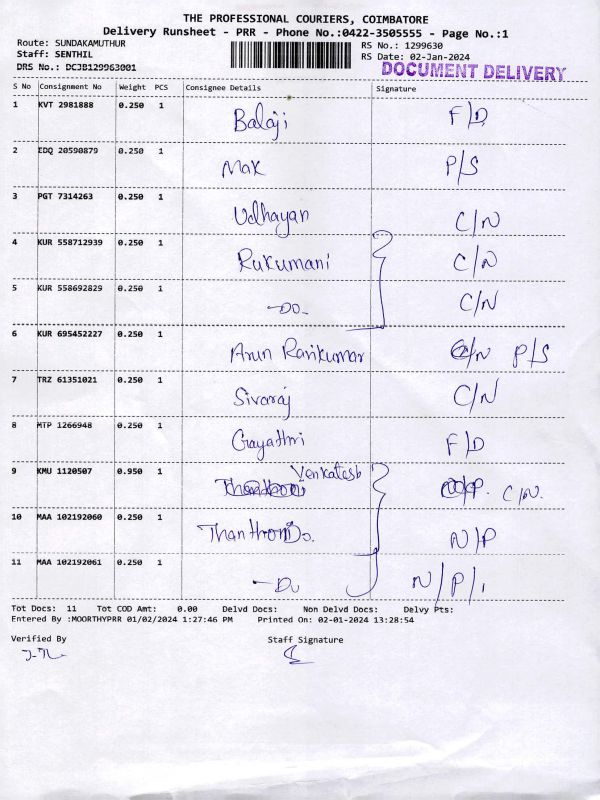 THE PROFESSIONAL COURIERS, COIMBATORE
Delivery Runsheet - PRR - Phone No.:0422-3505555 - Page No.:1
Route: SUNDAKAMUTHUR RS No.: 1299630
Staff: SENTHIL RS Date: 02-Jan-2024
DRS No.: DCJB129963001 DOCUMENT DELIVERY
S No Consignment No Weight PCS Consignee Details Signature
1 KVT 2981888 0.250 1 Balaji F/D
2 EDQ 20590879 0.250 1 Mak P/S
3 PGT 7314263 0.250 1 Udhayan C/N
4 KUR 558712939 0.250 1 Rukumani C/N
5 KUR 558692829 0.250 1 -DO- C/N
6 KUR 695452227 0.250 1 Arun Ravikumar P/S
7 TRZ 61351021 0.250 1 Sivaraj C/N
8 MTP 1266948 0.250 1 Gayathri F/D
9 KMU 1120507 0.950 1 Venkatesh C/N.
10 MAA 102192060 0.250 1 Thanthoni N/P
11 MAA 102192061 0.250 1 N/P
Tot Docs: 11 Tot COD Amt: 0.00 Delvd Docs: Non Delvd Docs: Delvy Pts:
Entered By :MOORTHYPRR 01/02/2024 1:27:46 PM Printed On: 02-01-2024 13:28:54
Verified By Staff Signature